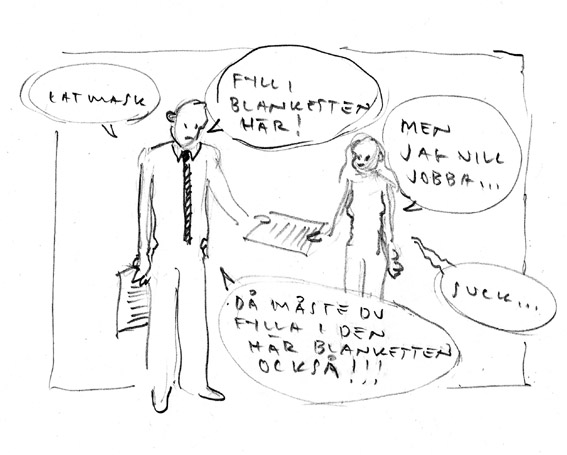 LATMASK
FYLL I
BLANKETTEN
HÄR!
MEN
JAG VILL
JOBBA...
DÅ MÅSTE DU
FYLLA I DEN
HÄR BLANKETTEN
OCKSÅ!!!
SUCK...